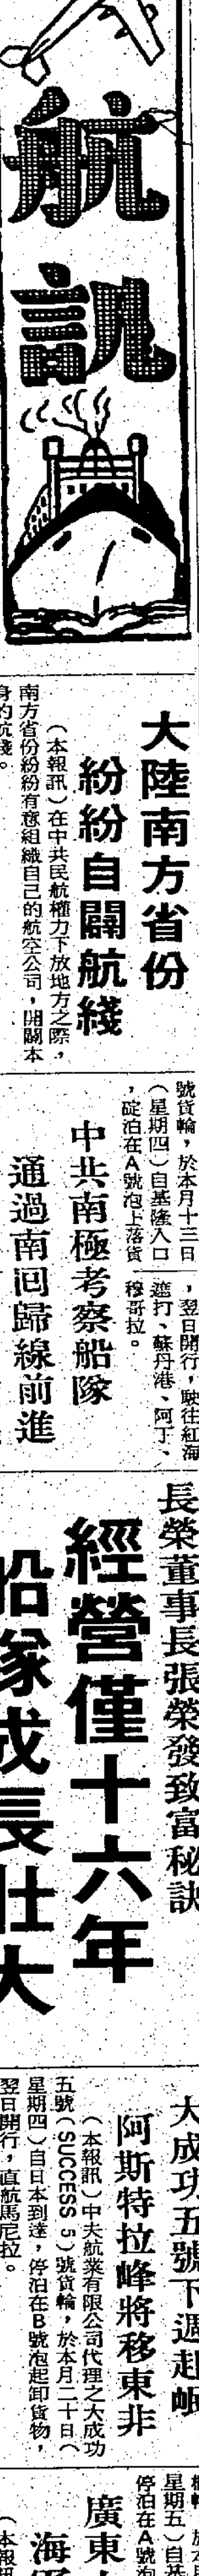 航訊
大陸南方省份
紛紛自闢航綫
（本報訊）在中共民航權力下放地方之際，
南方省份紛紛有意組織自己的航空公司，開闢本
身的航綫。
號貨輪，於本月十三日
（星期四）自基隆入口
，碇泊在A號泡上落貨
，翌日開行，駛往紅海
遮打、蘇丹港、阿丁、
穆哥拉。
中共南極考察船隊
通過南回歸線前進
長榮董事長張榮發致富秘訣
經營僅十六年
船隊成長壯大
大成功五號下週赴岷
阿斯特拉峰將移東非
（本報訊）中夫航業有限公司代理之大成功
五號（SUCCESS 5）號貨輪，於本月二十日（
星期四）自日本到達，停泊在B號泡起卸貨物，
翌日開行，直航馬尼拉。
星期五）自基
停泊在A號泡
廣東
海
（本報